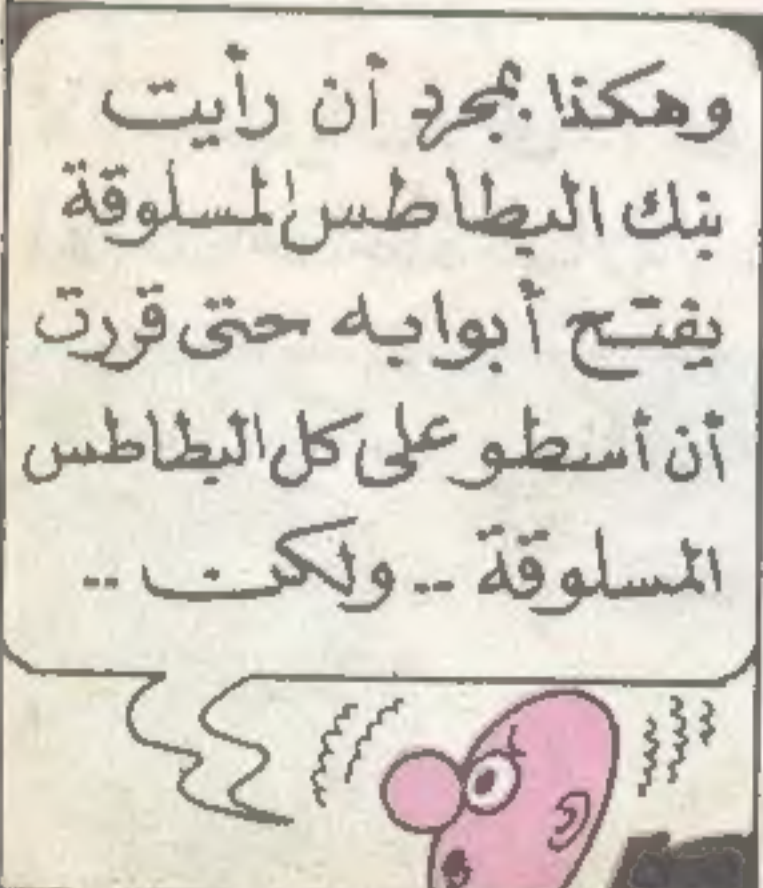 وهكذا بمجرد أن رأيت
بنك البطاطس المسلوقة
يفتح أبوابه حتى قررت
أن أسطو على كل البطاطس
المسلوقة .. ولكن ..